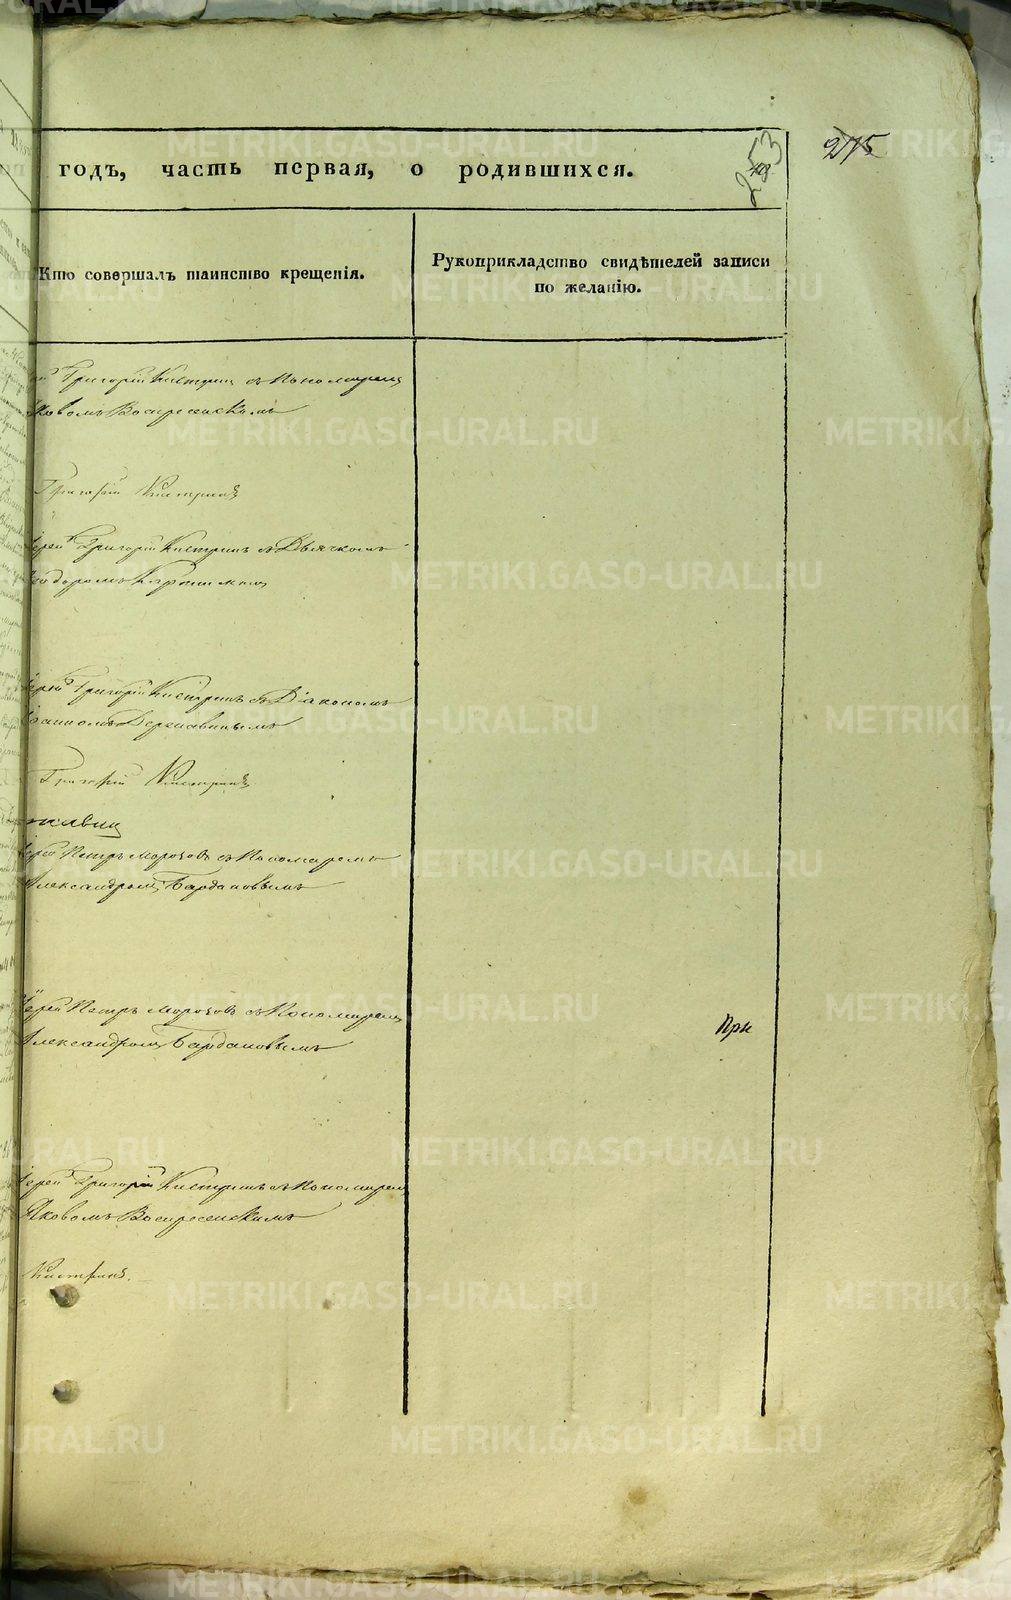 275
253
годъ, часть первая, о родившихся.
Кто совершалъ таинство крещенія.
Рукоприкладство свидѣтелей записи
по желанію.
Григорій Кистринъ съ Пономаремъ
Яковомъ Воскресенскимъ
Григорій Кистринъ
Іерей Григорій Кистринъ съ Дьячкомъ
Іерей Григорій Кистринъ съ Діакономъ
Іоанномъ Державинымъ
Григорій Кистринъ
Іерей Петръ Морозовъ съ Пономаремъ
Александромъ Бардановымъ
Іерей Петръ Морозовъ съ Пономаремъ
Александромъ Бардановымъ
При
Іерей Григорій Кистринъ съ Пономаремъ
Яковомъ Воскресенскимъ
Кистринъ.
METRIKI.GASO-URAL.RU